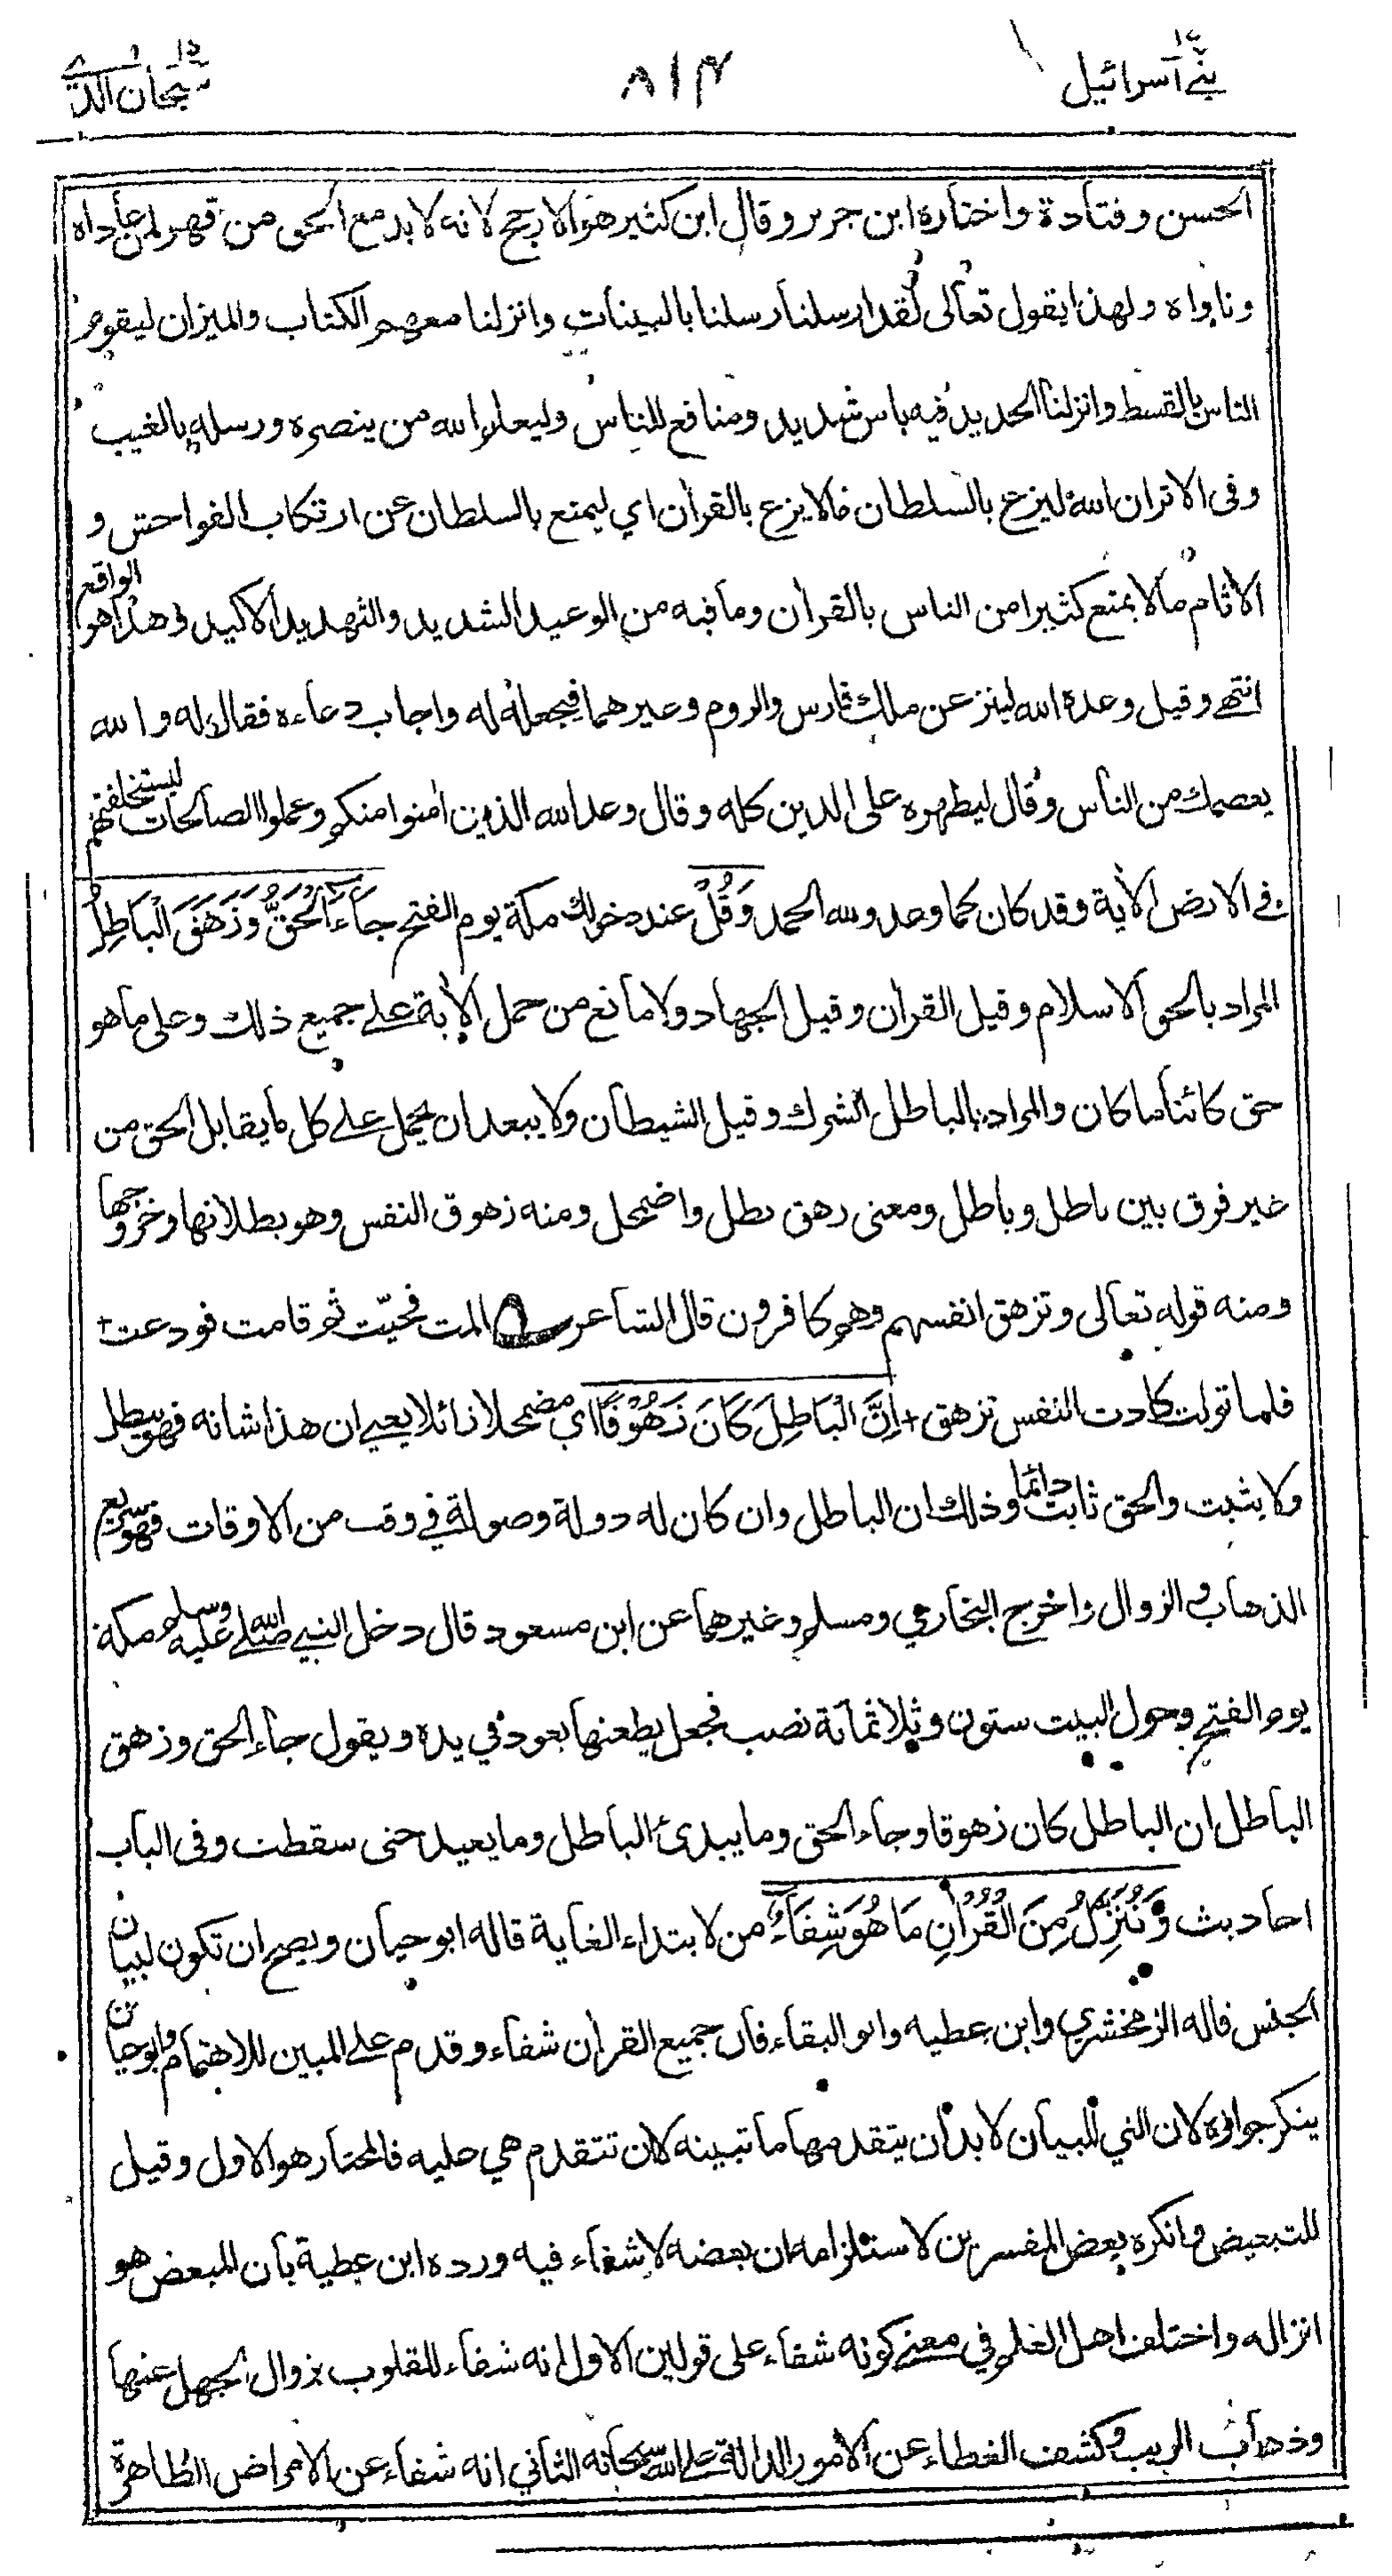 بني اسرائيل ١٧
٨١٤
سبحان الذي ١٥
الحسن وقتادة واختاره ابن جرير وقال ابن كثير هو الارجح لانه لا بد مع الحق من قهر لمن عاداه
وناواه ولهذا يقول تعالى لقد ارسلنا رسلنا بالبينات وانزلنا معهم الكتاب والميزان ليقوم
الناس بالقسط وانزلنا الحديد فيه باس شديد ومنافع للناس وليعلم الله من ينصره ورسله بالغيب
وفى الاثر ان الله ليزع بالسلطان مالا يزع بالقرأن اي ليمنع بالسلطان عن ارتكاب الفواحش و
الاثام مالا يمنع كثيرا من الناس بالقرأن وما فيه من الوعيد الشديد والتهديد الاكيد وهذا هو الواقع
انتهى وقيل وعده الله لينزعن ملك فارس والروم وغيرهما فيجعله له واجاب دعاءه فقال له والله
يعصمك من الناس وقال ليظهره على الدين كله وقال وعد الله الذين أمنوا منكم وعملوا الصالحات ليستخلفنهم
فى الارض الأية وقد كان كما وعد ولله الحمد وَقُلْ عند دخولك مكة يوم الفتح جَاءَ الْحَقُّ وَزَهَقَ الْبَاطِلُ
المراد بالحق الاسلام وقيل القرأن وقيل الجهاد ولا مانع من حمل الأية على جميع ذلك وعلى ما هو
حق كائنا ما كان والمراد بالباطل الشرك وقيل الشيطان ولا يبعد ان يحمل على كل ما يقابل الحق من
غير فرق بين باطل وباطل ومعنى زهق بطل واضمحل ومنه زهوق النفس وهو بطلانها وخروجها
ومنه قوله تعالى وتزهق انفسهم وهم كافرون قال الشاعر المت فحيّت ثم قامت فودعت +
فلما تولت كادت النفس تزهق + اِنَّ الْبَاطِلَ كَانَ زَهُوْقًا اي مضمحلا زائلا يعني ان هذا شانه فهو يبطل
ولا يثبت والحق ثابت دائما وذلك ان الباطل وان كان له دولة وصولة في وقت من الاوقات فهو سريع
الذهاب والزوال واخرج البخاري ومسلم وغيرهما عن ابن مسعود قال دخل النبي صلى الله عليه وسلم مكة
يوم الفتح وحول البيت ستون وثلاثمائة نصب فجعل يطعنها بعود في يده ويقول جاء الحق وزهق
الباطل ان الباطل كان زهوقا وجاء الحق وما يبدئ الباطل وما يعيد حتى سقطت وفى الباب
احاديث وَنُنَزِّلُ مِنَ الْقُرْاٰنِ مَا هُوَ شِفَاءٌ من لابتداء الغاية قاله ابو حيان ويصح ان تكون لبيان
الجنس قاله الزمخشري وابن عطيه وابو البقاء فان جميع القرأن شفاء وقدم على المبين للاهتمام وابو حيان
ينكر جوازه لان التي للبيان لا بد أن يتقدمها ما تبينه لان تتقدم هي عليه فالمختار هو الاول وقيل
للتبعيض وانكره بعض المفسرين لاستلزامه ان بعضه لا شفاء فيه ورده ابن عطية بأن المبعض هو
انزاله واختلف اهل العلم في معنى كونه شفاء على قولين الاول انه شفاء للقلوب بزوال الجهل عنها
وذهاب الريب وكشف الغطاء عن الأمور الدالة على الله سبحانه الثاني انه شفاء عن الامراض الظاهرة